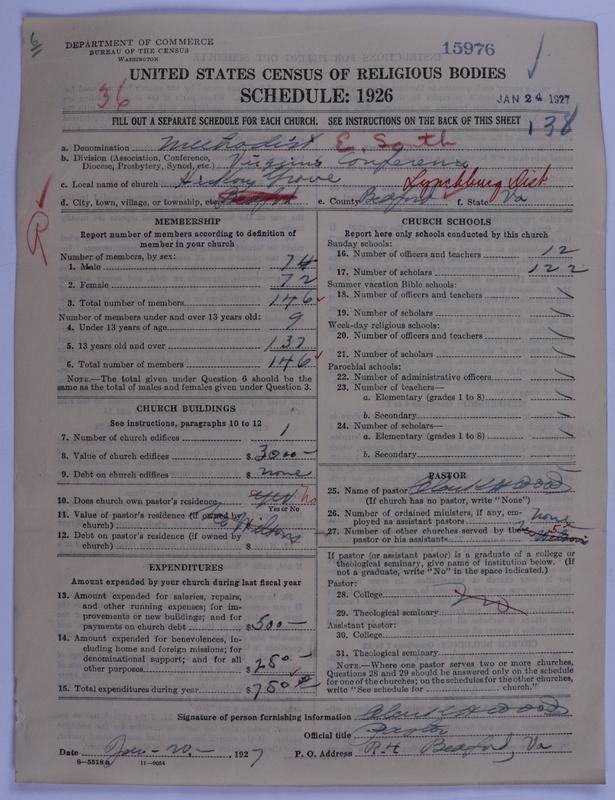 DEPARTMENT OF COMMERCE
BUREAU OF THE CENSUS
WASHINGTON
15976
UNITED STATES CENSUS OF RELIGIOUS BODIES
36
SCHEDULE: 1926
JAN 24 1927
FILL OUT A SEPARATE SCHEDULE FOR EACH CHURCH. SEE INSTRUCTIONS ON THE BACK OF THIS SHEET
138
a. Denomination Methodist E. South
b. Division (Association, Conference, Diocese, Presbytery, Synod, etc.) Virginia Conference
c. Local name of church Hickory Grove
Lynchburg Dist
d. City, town, village, or township, etc. e. County Bedford f. State Va
R
MEMBERSHIP
Report number of members according to definition of
member in your church
Number of members, by sex:
1. Male 74
2. Female 72
3. Total number of members 146
Number of members under and over 13 years old:
4. Under 13 years of age 9
5. 13 years old and over 137
6. Total number of members 146
NOTE.—The total given under Question 6 should be
same as the total of males and females given under Question 3.
CHURCH BUILDINGS
See instructions, paragraphs 10 to 12
7. Number of church edifices 1
8. Value of church edifices $ 3000—
9. Debt on church edifices $ none
10. Does church own pastor's residence yes No
Yes or No
11. Value of pastor's residence (if owned by
church)
12. Debt on pastor's residence (if owned by
church) $
EXPENDITURES
Amount expended by your church during last fiscal year
13. Amount expended for salaries, repairs,
and other running expenses; for im-
provements or new buildings; and for
payments on church debt $ 500—
14. Amount expended for benevolences, in-
cluding home and foreign missions; for
denominational support; and for all
other purposes $ 250—
15. Total expenditures during year $ 750
CHURCH SCHOOLS
Report here only schools conducted by this church
Sunday schools:
16. Number of officers and teachers 12
17. Number of scholars 122
Summer vacation Bible schools:
18. Number of officers and teachers
19. Number of scholars
Week-day religious schools:
20. Number of officers and teachers
21. Number of scholars
Parochial schools:
22. Number of administrative officers
23. Number of teachers—
a. Elementary (grades 1 to 8)
b. Secondary
24. Number of scholars—
a. Elementary (grades 1 to 8)
b. Secondary
PASTOR
25. Name of pastor Wood
(If church has no pastor, write "None")
26. Number of ordained ministers, if any, em-
ployed as assistant pastors none
27. Number of other churches served by the
pastor or his assistants
If pastor (or assistant pastor) is a graduate of a college or
theological seminary, give name of institution below. (If
not a graduate, write "No" in the space indicated.)
Pastor:
28. College
no
29. Theological seminary
Assistant pastor:
30. College
31. Theological seminary
NOTE.—Where one pastor serves two or more churches,
Questions 28 and 29 should be answered only on the schedule
for one of the churches; on the schedules for the other churches,
write "See schedule for church."
Signature of person furnishing information Wood
Official title Pastor
Date Jan - 20 -, 1927 P. O. Address R-4 Bedford, Va
8—5518a 11—9034